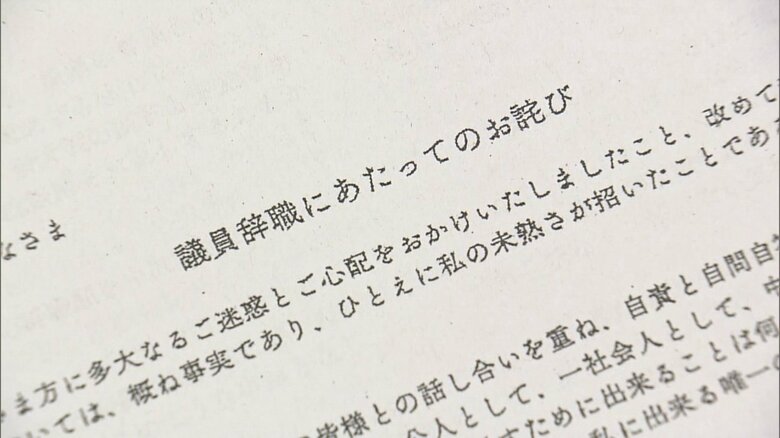 議員辞職にあたってのお詫び
なさま
ま方に多大なるご迷惑とご心配をおかけいたしましたこと、改めて
いては、概ね事実であり、ひとえに私の未熟さが招いたことであ
皆様との話し合いを重ね、自責と自問自
人として、一社会人として、
すために出来ることは何
私に出来る唯一の